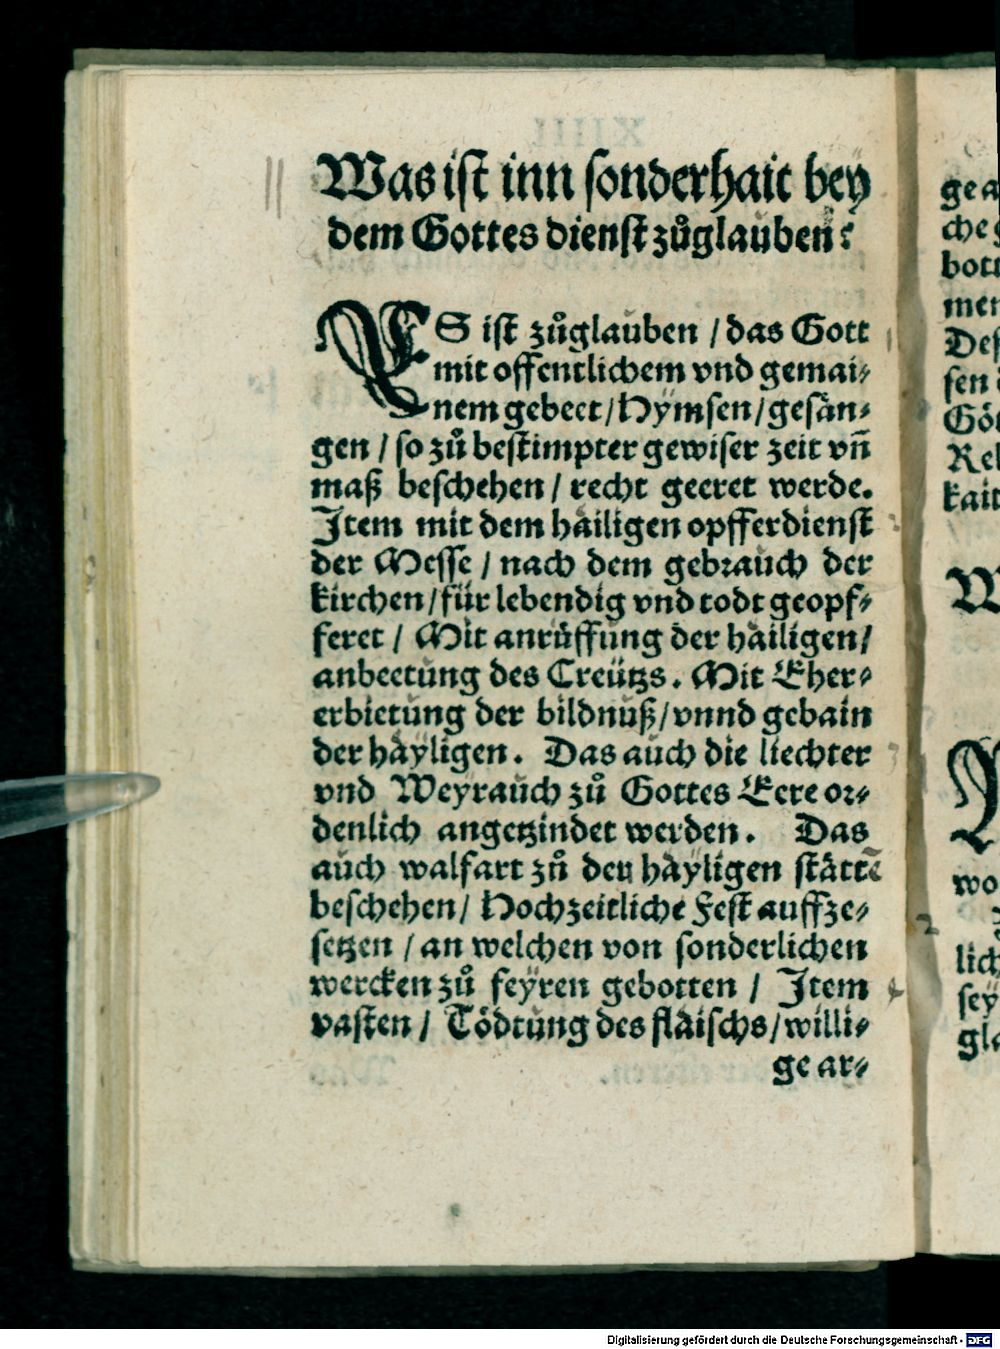 11
Was ist inn sonderhait bey
dem Gottes dienst zůglauben?
ES ist zůglauben / das Gott
mit offentlichem vnd gemai⸗
nem gebeet / Hÿmsen / gesän⸗
gen / so zů bestimpter gewiser zeit vñ
maß beschehen / recht geeret werde.
Item mit dem häiligen opfferdienst
der Messe / nach dem gebrauch der
kirchen / für lebendig vnd todt geopf⸗
feret / Mit anrüffung der häiligen /
anbeetung des Creützs. Mit Eher⸗
erbietung der bildnuß / vnnd gebain
der häyligen. Das auch die liechter
vnd Weyrauch zů Gottes Eere or⸗
denlich angetzindet werden. Das
auch walfart zů den häyligen stättē
beschehen / Hochzeitliche Fest auffze⸗
setzen / an welchen von sonderlichen
wercken zů feÿren gebotten / Item
vasten / Tödtung des fläischs / willi⸗
ge ar⸗
ge a
che
bott
men
Des
sen
Göt
Rel
kait
W
wo
lich
sey
gla
Digitalisierung gefördert durch die Deutsche Forschungsgemeinschaft - DFG